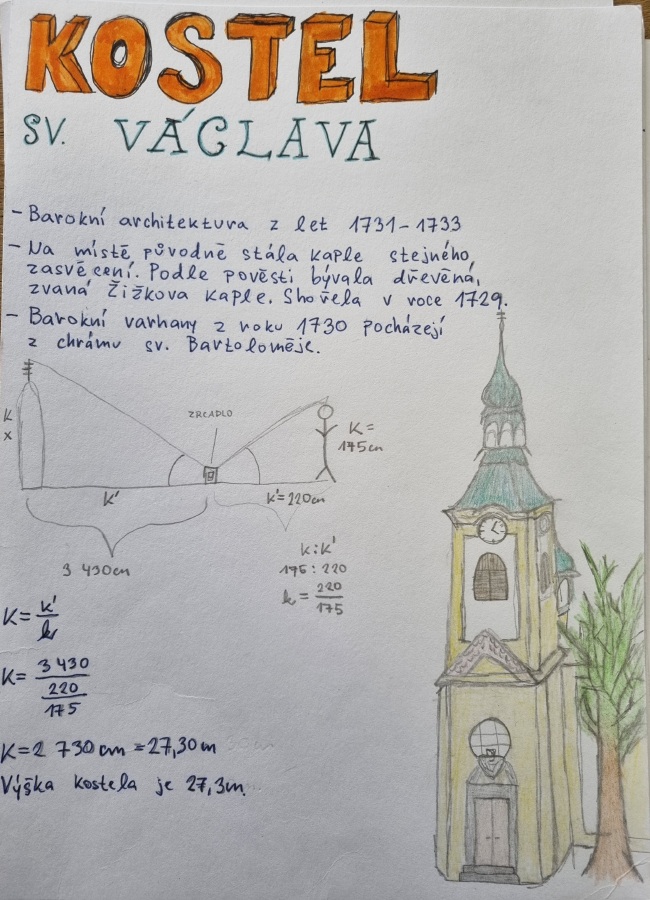 KOSTEL
SV. VÁCLAVA
- Barokní architektura z let 1731-1733
- Na místě původně stála kaple stejného
zasvěcení. Podle pověsti bývala dřevěná,
zvaná Žižkova kaple. Shořela v roce 1729.
- Barokní varhany z roku 1730 pocházejí
z chrámu sv. Bartoloměje.
ZRCADLO
K
x
K=
175cm
K'
K'=220cm
3 430cm
K:K'
175:220
k = 220/175
K = K'/k
K = 3 430/(220/175)
K=2 730 cm = 27,30m
Výška kostela je 27,3m.